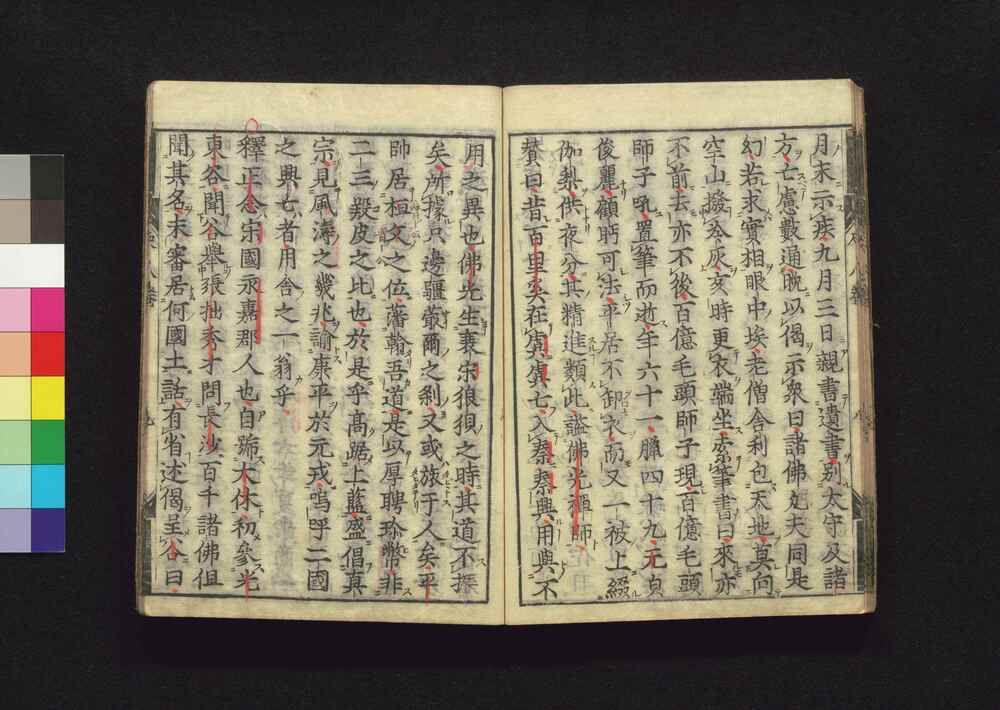 月末示疾九月三日親書遺書別太守及諸
方亡慮數通晩以偈示衆曰諸佛凡夫同是
幻若求實相眼中埃老僧舎利包天地莫向
空山撥冷灰亥時更衣端坐索筆書曰來亦
不前去亦不後百億毛頭師子現百億毛頭
師子吼置筆而逝年六十一臘四十九元貞
俊麗顧眄可法平居不卸衣而又一被上綴
伽梨供夜分其精進類此謚佛光禪師
賛曰昔百里奚在虞虞亡入秦秦興用與不
用之異也佛光生乗宋狼狽之時其道不振
矣所據只邊疆蕞爾之刹又或旅于人矣平
帥居桓文之位藩翰吾道是以厚聘珍幣非
二三羖皮之比也於是乎高踞上藍盛倡真
宗見風濤之幾兆諭康平於元戎嗚呼二國
之興亡者用舎之一翁乎
釋正念宋國永嘉郡人也自號大休初參光
東谷聞谷擧張拙秀才問長沙百千諸佛但
聞其名未審居何國土話有省述偈呈谷曰